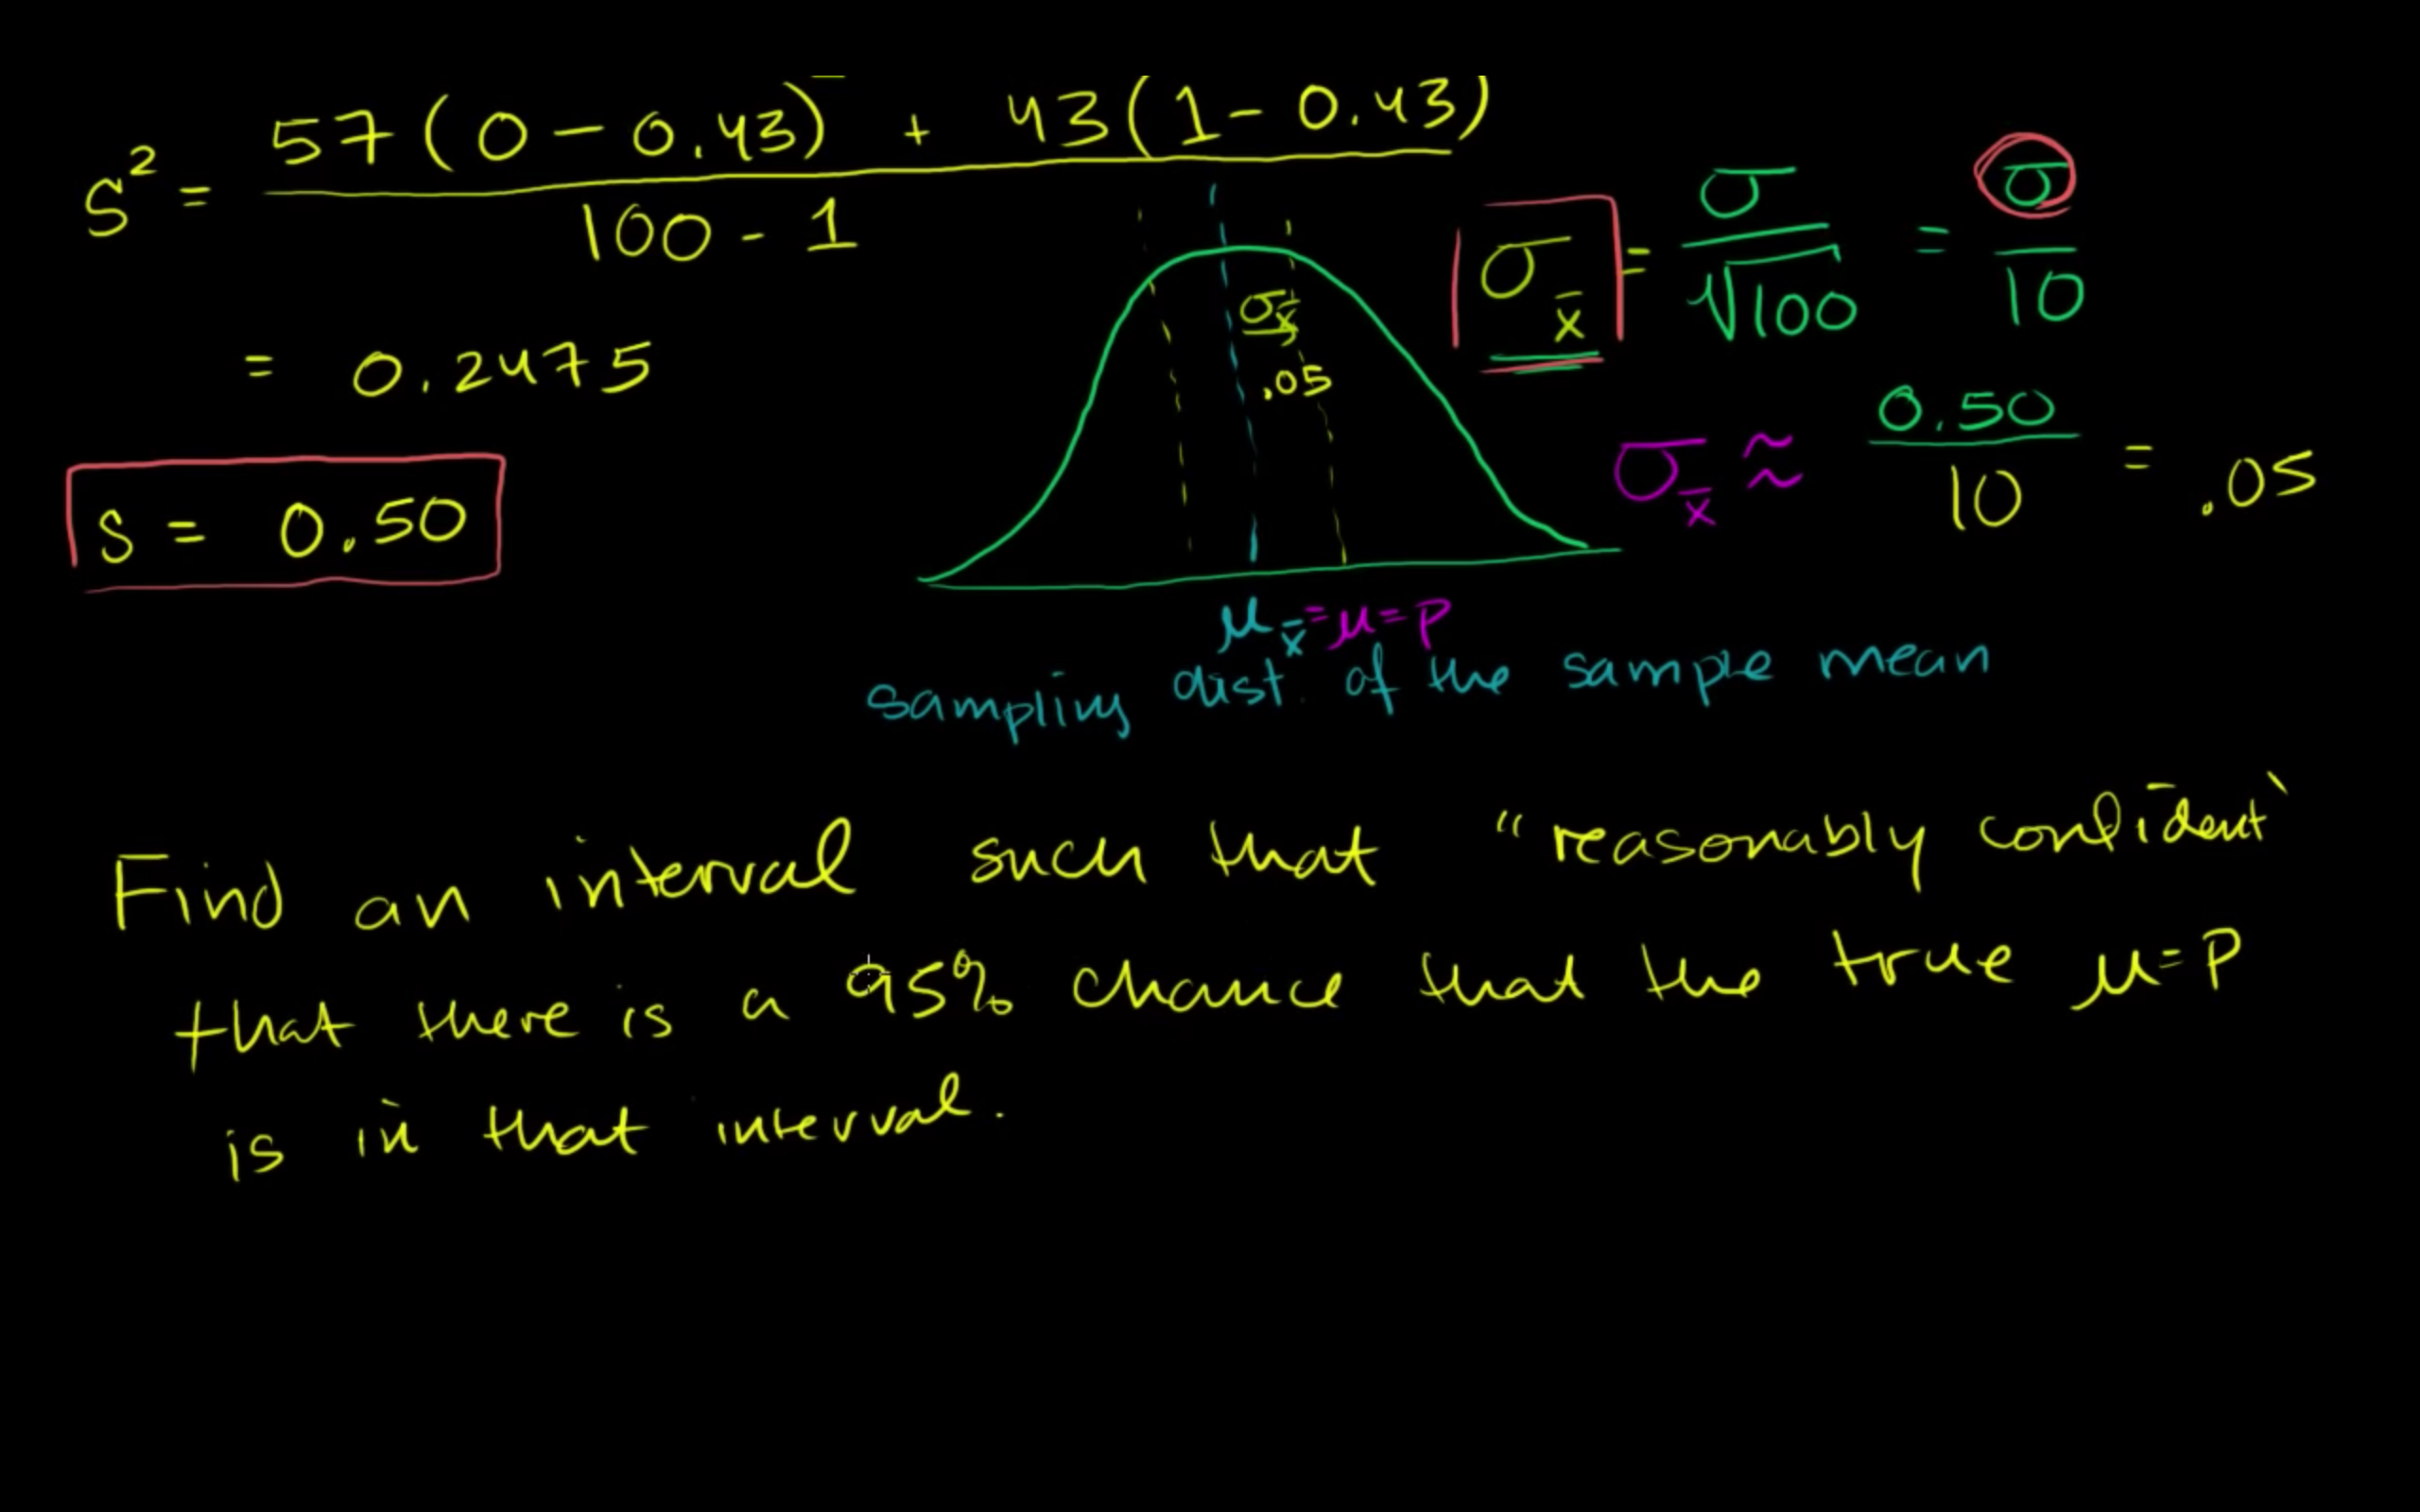 s² = 57(0 - 0.43) + 43(1 - 0.43)
100 - 1
= 0.2475
s = 0.50
σx̄ = σ/√100 = σ/10
σx̄
.05
σx̄ ≈ 0.50/10 = .05
μx̄ = μ = P
sampling dist. of the sample mean
Find an interval such that "reasonably confident"
that there is a 95% chance that the true μ = P
is in that interval.